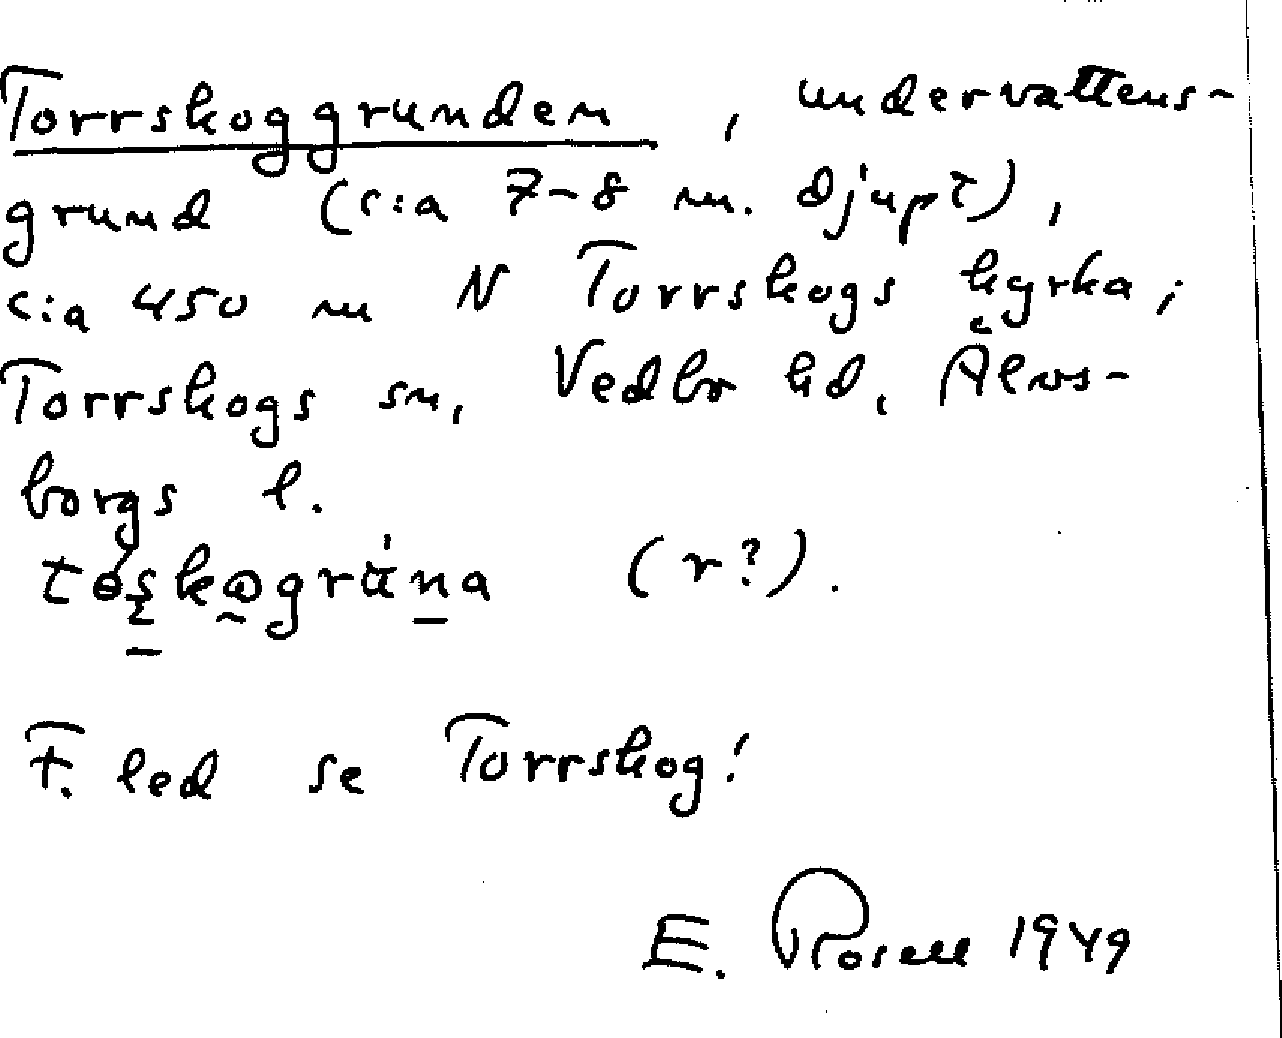 Torrskoggrunden, undervattens-
grund (c:a 7-8 m. djupt),
c:a 450 m N Torrskogs kyrka,
Torrskogs sn, Vedbo hd, Älvs-
borgs l.
(r?).
F. led se Torrskog!
E. Rosell 1949